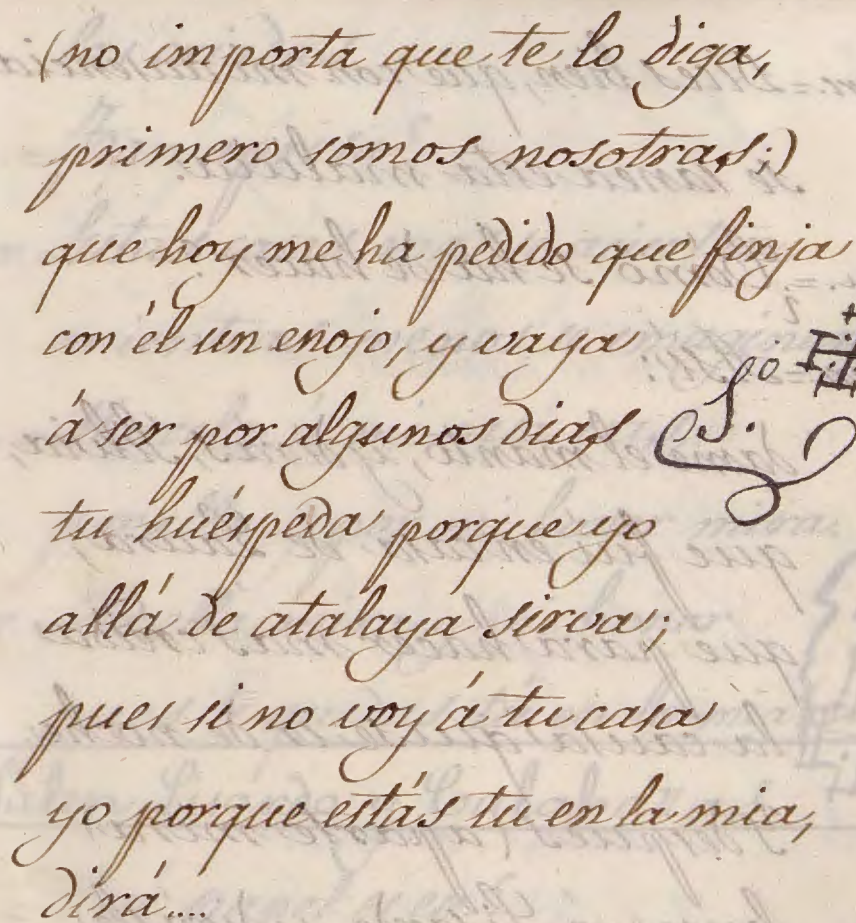 (no importa que te lo diga,
primero somos nosotras;)
que hoy me ha pedido que finja
con él un enojo, y vaya
á ser por algunos dias
tu huéspeda porque yo
allá de atalaya sirva;
pues si no voy á tu casa
yo porque estás tu en la mia,
dirá....